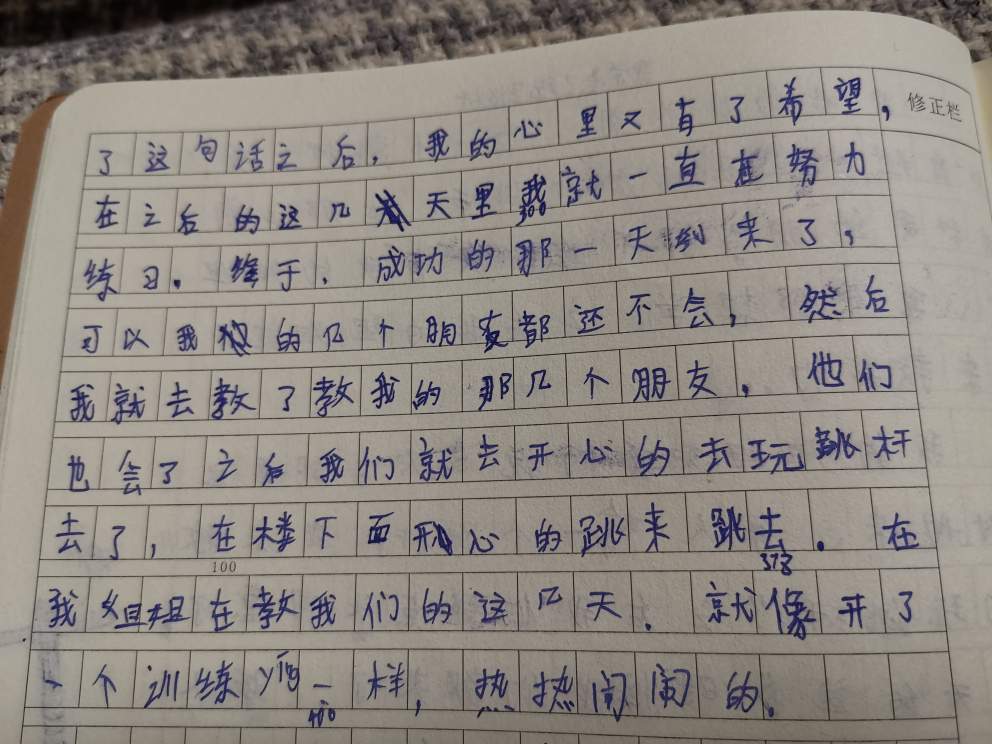 了这句话之后，我的心里又有了希望，
修正栏
在之后的这几天里我就一直在努力
300
练习。终于，成功的那一天到来了，
可以我的几个朋友都还不会，然后
我就去教了教我的那几个朋友，他们
也会了之后我们就去开心的去玩跳杆
去了，在楼下面开心的跳来跳去。在
100
378
我姐姐在教我们的这几天，就像开了
一个训练yíng一样，热热闹闹的。
400